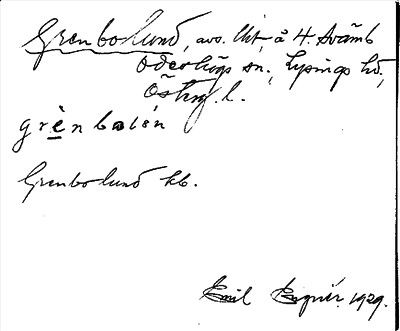 Grenbolund, avs. lht, å 4. Svämb
Ödeshögs sn, Lysings hd,
Östg. l.
grènbolún
Grenbolund kb.
Emil 1929.